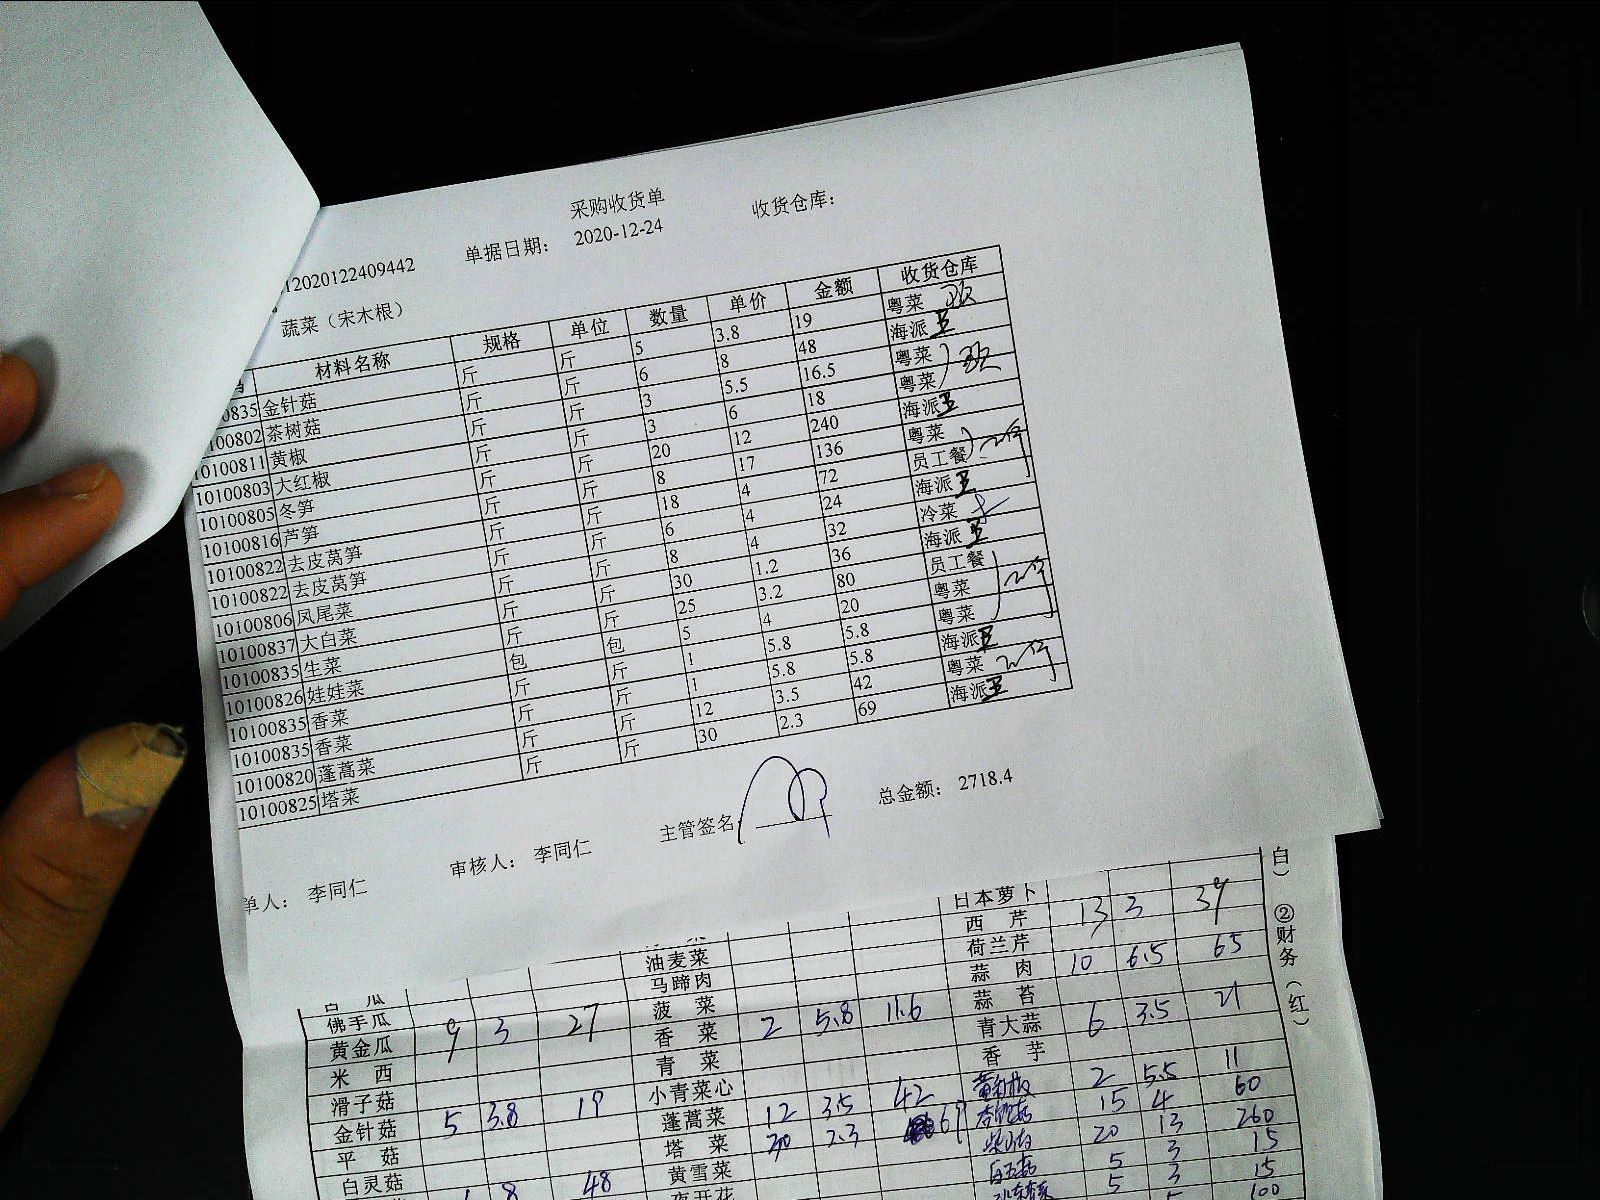 采购收货单
12020122409442 单据日期： 2020-12-24 收货仓库：
蔬菜（宋木根）
材料名称 规格 单位 数量 单价 金额 收货仓库
0835 金针菇 斤 斤 5 3.8 19 粤菜
100802 茶树菇 斤 斤 6 8 48 海派
10100811 黄椒 斤 斤 3 5.5 16.5 粤菜
10100803 大红椒 斤 斤 3 6 18 粤菜
10100805 冬笋 斤 斤 20 12 240 海派
10100816 芦笋 斤 斤 8 17 136 粤菜
10100822 去皮莴笋 斤 斤 18 4 72 员工餐
10100822 去皮莴笋 斤 斤 6 4 24 海派
10100806 凤尾菜 斤 斤 8 4 32 冷菜
10100837 大白菜 斤 斤 30 1.2 36 海派
10100835 生菜 斤 斤 25 3.2 80 员工餐
10100826 娃娃菜 包 包 5 4 20 粤菜
10100835 香菜 斤 斤 1 5.8 5.8 粤菜
10100835 香菜 斤 斤 1 5.8 5.8 海派
10100820 蓬蒿菜 斤 斤 12 3.5 42 粤菜
10100825 塔菜 斤 斤 30 2.3 69 海派
单人： 李同仁 审核人： 李同仁 主管签名 总金额： 2718.4
日本萝卜
西芹 13 3 39
油麦菜 荷兰芹
马蹄肉 蒜肉 10 6.5 65
白瓜 菠菜 蒜苔
佛手瓜 香菜 2 5.8 11.6 青大蒜 6 3.5 21
黄金瓜 9 3 27 青菜 香芋
米西 小青菜心 2 5.5 11
滑子菇 蓬蒿菜 12 3.5 42 15 4 60
金针菇 5 3.8 19 塔菜 30 2.3 69 20 13 260
平菇 黄雪菜 5 3 15
白灵菇 夜开花 5 3 15
8 48 100
白） ②财务（红）